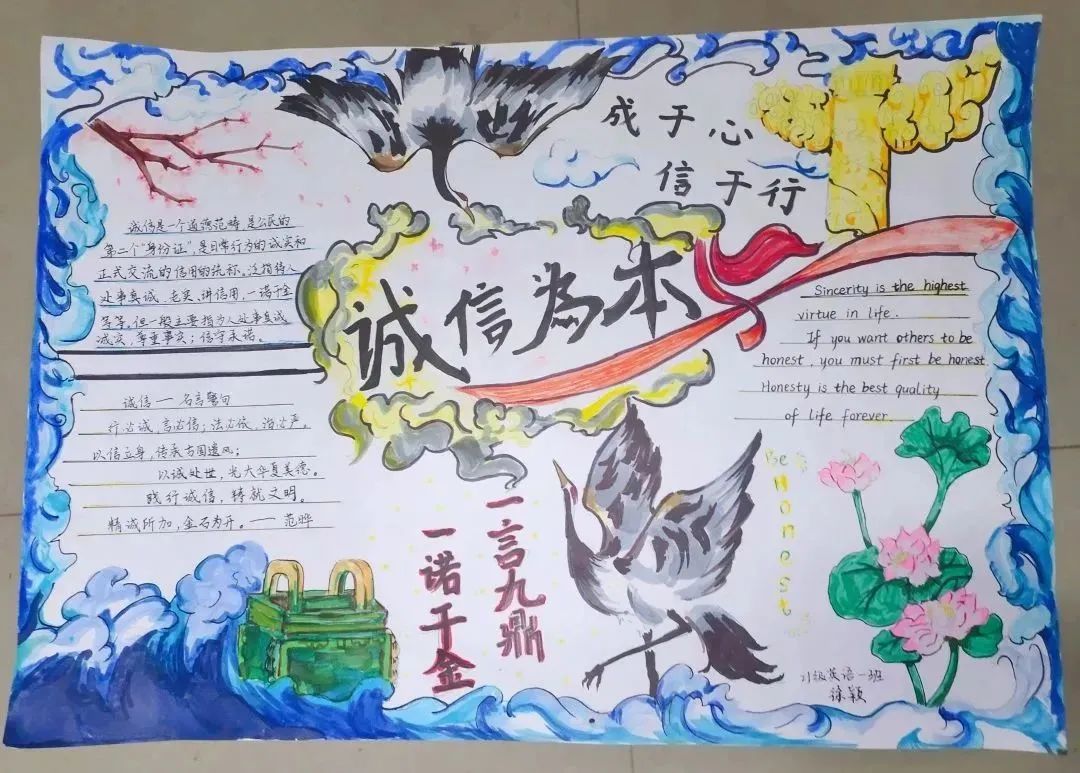 成于心
信于行
诚信是一个道德范畴,是公民的
第二个"身份证",是日常行为的诚实和
正式交流的信用的统称。泛指待人
处事真诚、老实、讲信用,一诺千金
等等。但一般主要指为人处事真诚
诚实,尊重事实;信守承诺。
誠信為本
Sincerity is the highest
virtue in life.
If you want others to be
honest, you must first be honest
Honesty is the best quality
of life forever.
诚信——名言警句
行必诚,言必信;法必依,治必严。
以信立身,传承古国遗风;
以诚处世,光大华夏美德。
践行诚信,铸就文明。
精诚所加,金石为开。——范晔
一言九鼎
一诺千金
Be Honest
21级英语一班
徐颖